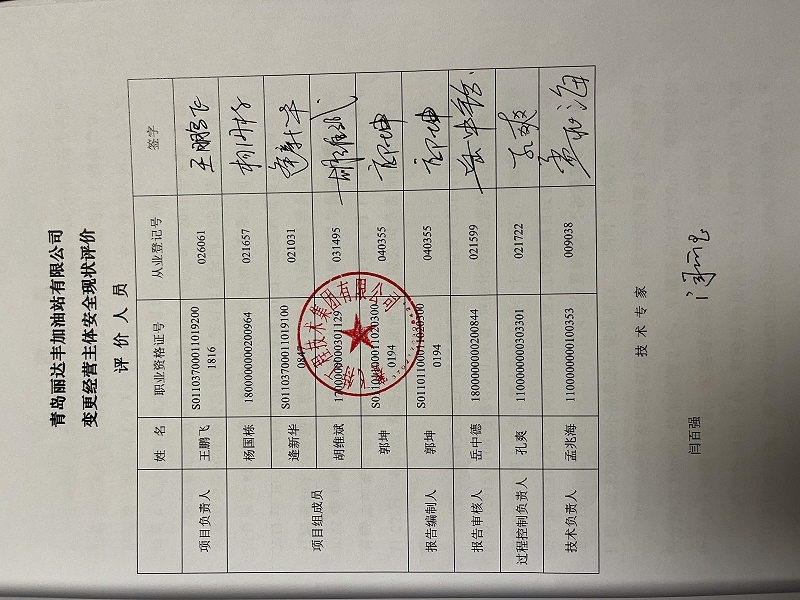 青岛丽达丰加油站有限公司
变更经营主体安全现状评价
评 价 人 员
姓 名 职业资格证号 从业登记号 签字
项目负责人 王鹏飞 S011037000110192001816 026061 王鹏飞
项目组成员 杨国栋 1800000000200964 021657
逄新华 S011037000110191000847 021031
胡维斌 031495 胡维斌
郭坤 S011011000110203000194 040355 郭坤
报告编制人 郭坤 S011011000110203000194 040355 郭坤
报告审核人 岳中德 1800000000200844 021599
过程控制负责人 孔爽 1100000000303301 021722 孔爽
技术负责人 孟兆海 1100000000100353 009038 孟兆海
技 术 专 家
闫百强